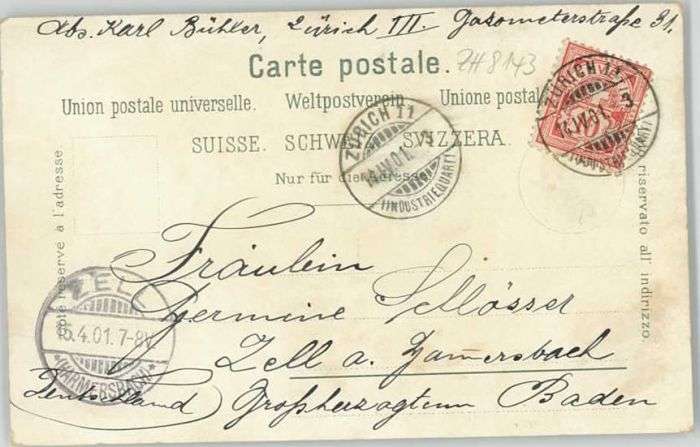 Abs. Karl Bühler, Zürich III. Gasometerstraße 31.
Carte postale.
ZH 8143
Union postale universelle. Weltpostverein. Unione postale
SUISSE. SCHWEIZ. SVIZZERA.
Nur für die Adresse.
Côté réservé à l'adresse
riservato all indirizzo
ZÜRICH 11
14.IV.01.
(INDUSTRIEQUART.)
ZÜRICH 11
14.IV.01.
(INDUSTRIEQUART.)
Fräulein
Hermine Schlösser
Zell a. Hamersbach
Deutschland Großherzogtum Baden
ZELL
15.4.01.7-8V.
(HARMERSBACH)